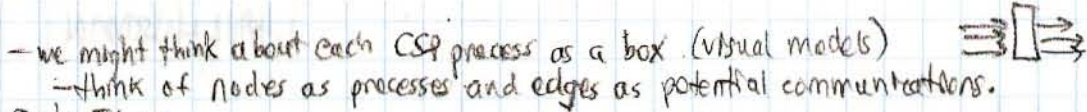 - we might think about each CSP process as a box (visual models)
- think of nodes as processes and edges as potential communications.